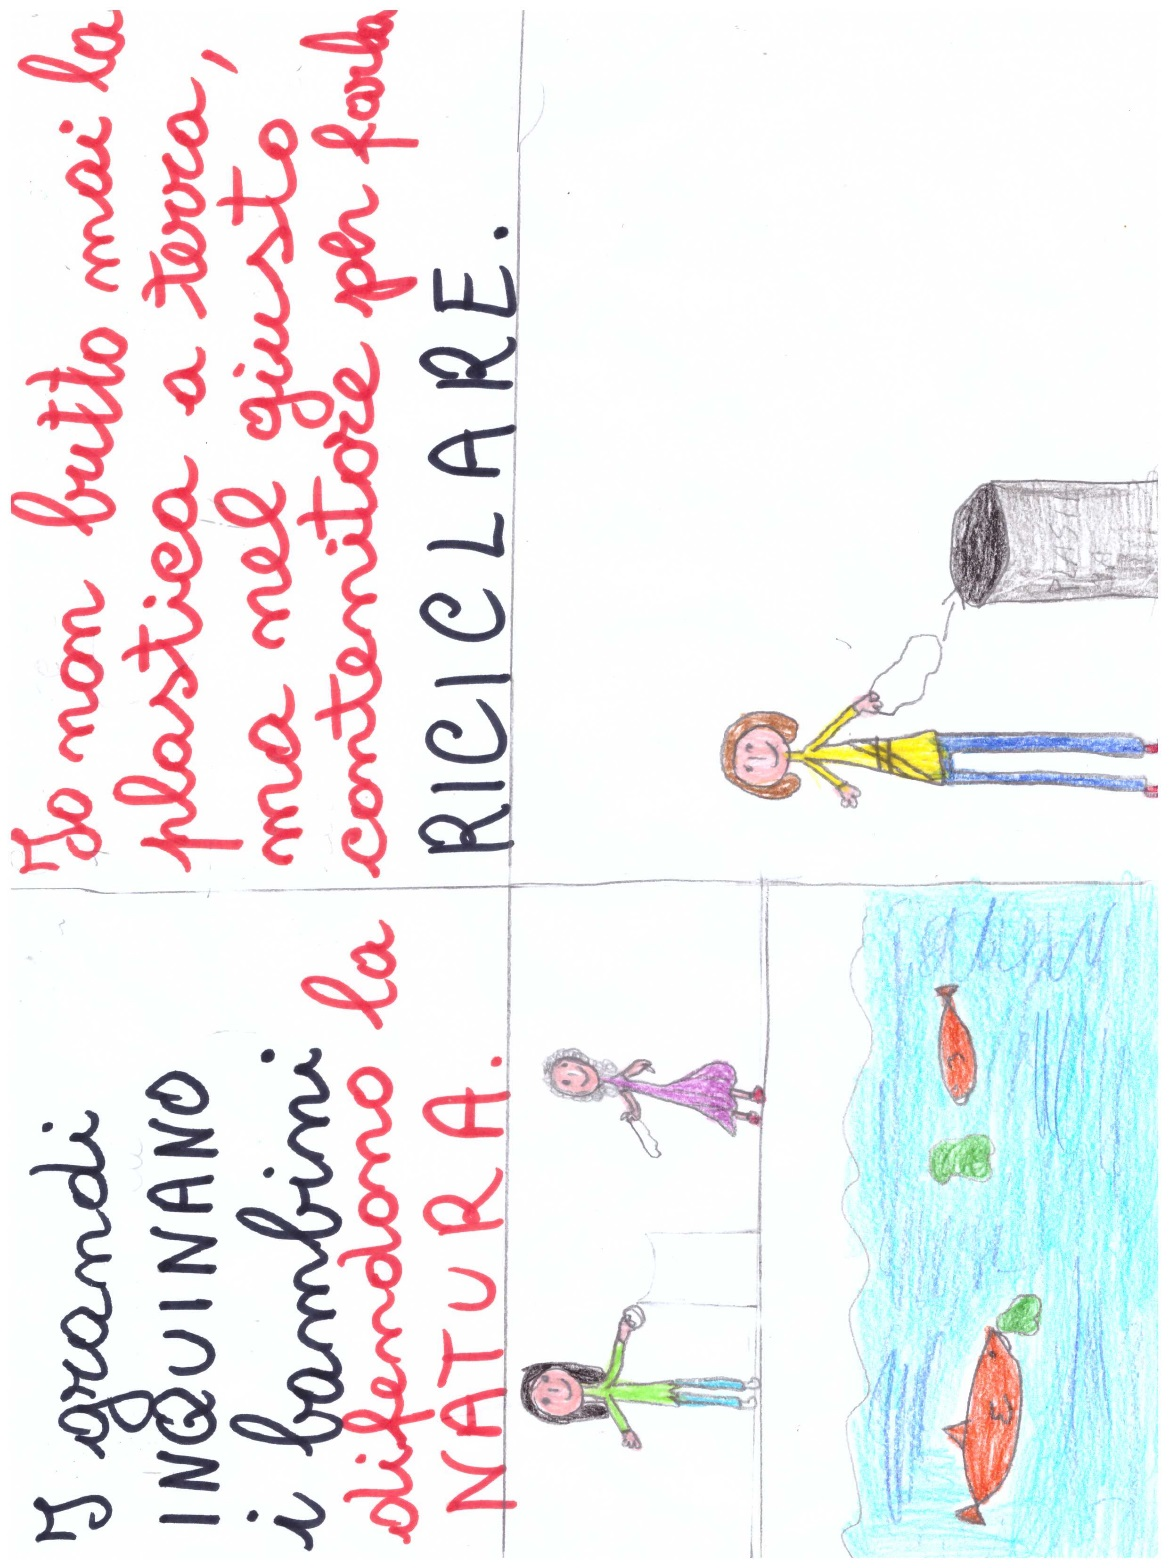 I grandi
INQUINANO
i bambini
difendono la
NATURA.
Io non butto mai la
plastica a terra,
ma nel giusto
contenitore per farla
RICICLARE.